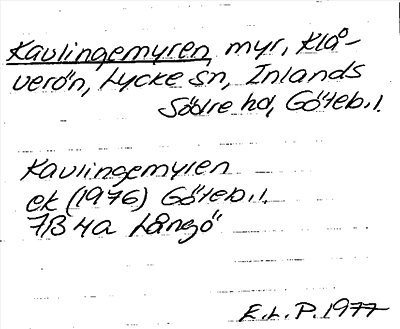 Kavlingemyren, myr, Klå-
verön, Lycke sn, Inlands
Södre hd, Göteb.l.
Kavlingemyren
ek (1976) Göteb.l.
7B 4a Långö
E.L.P. 1977